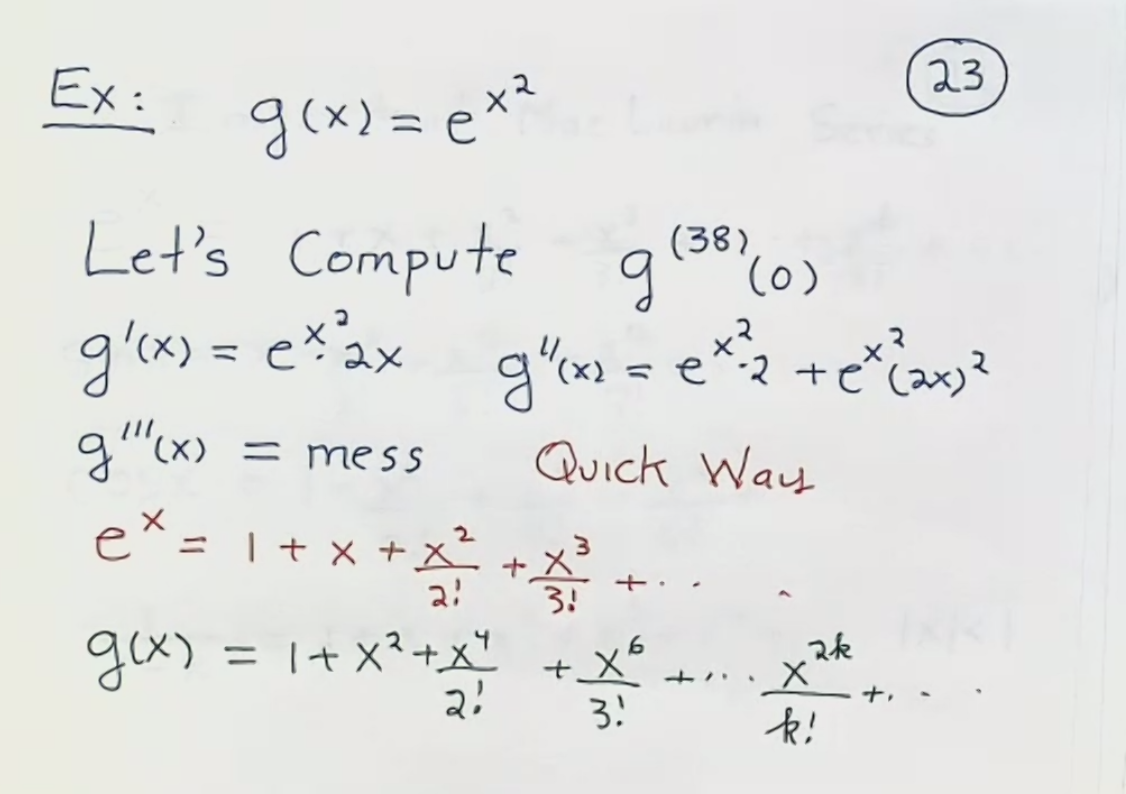 Ex: g(x) = e^{x^2} 23
Let's Compute g^{(38)}(0)
g'(x) = e^{x^2}·2x g''(x) = e^{x^2}·2 + e^{x^2}(2x)^2
g'''(x) = mess Quick Way
e^x = 1 + x + x^2/2! + x^3/3! + ...
g(x) = 1 + x^2 + x^4/2! + x^6/3! + ... x^{2k}/k! + ...